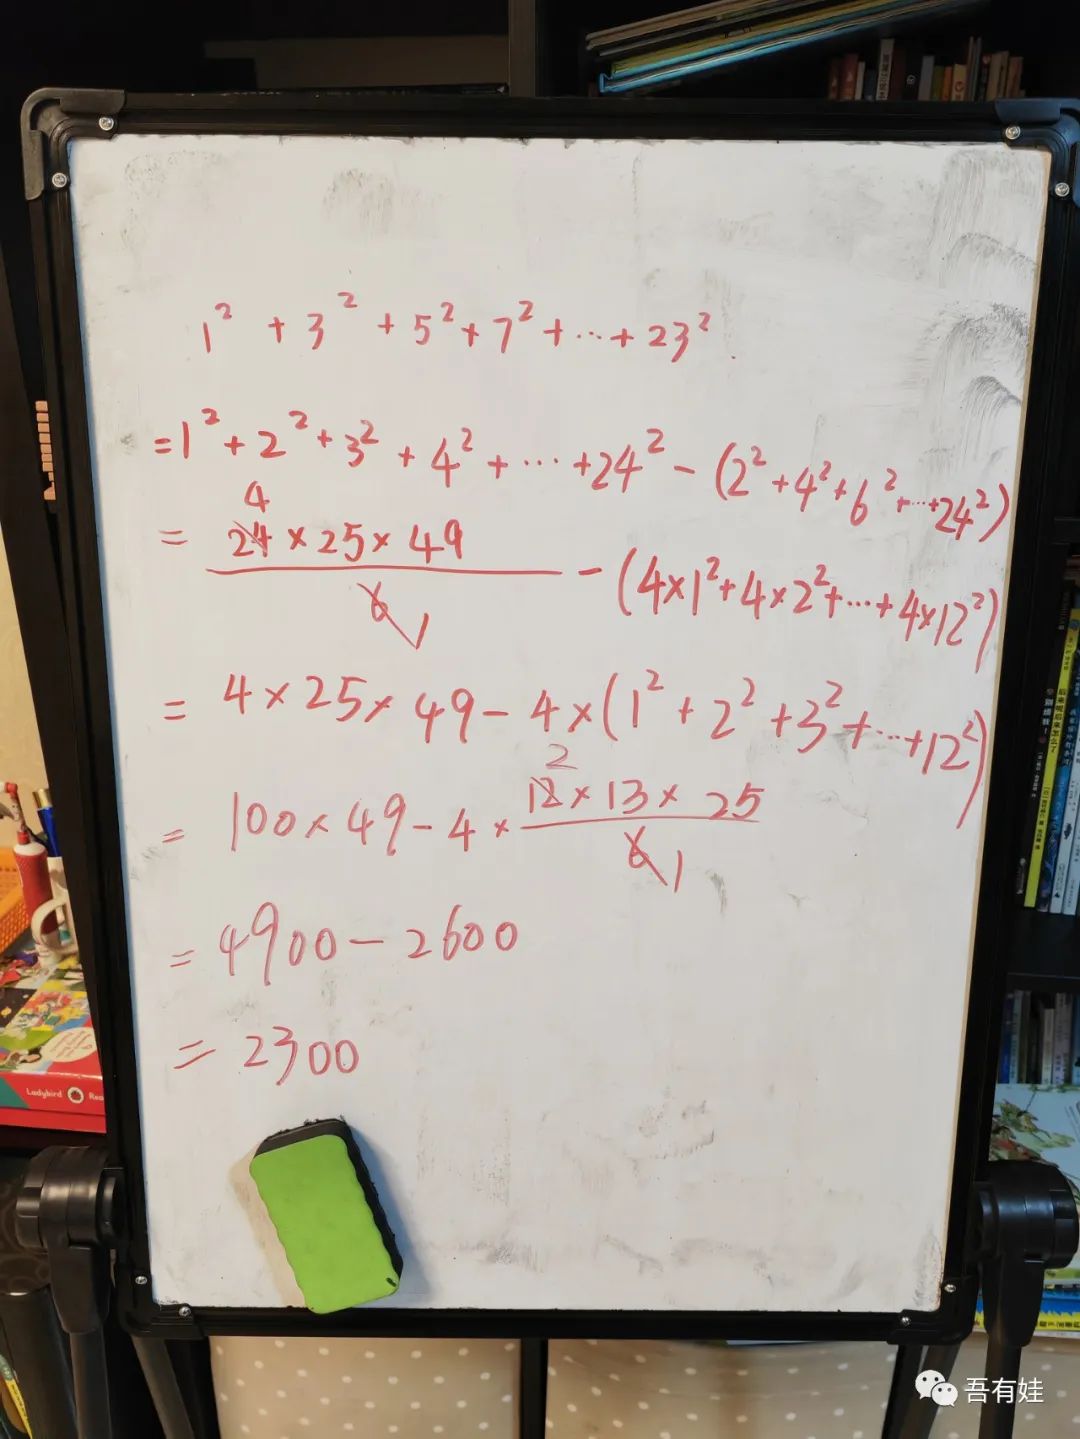 1² + 3² + 5² + 7² + ··· + 23²
= 1² + 2² + 3² + 4² + ··· + 24² - (2² + 4² + 6² + ··· + 24²)
4
= 24 × 25 × 49 / 6 - (4×1² + 4×2² + ··· + 4×12²)
1
= 4 × 25 × 49 - 4 × (1² + 2² + 3² + ··· + 12²)
2
= 100 × 49 - 4 × 12 × 13 × 25 / 6
1
= 4900 - 2600
= 2300
Ladybird
吾有娃